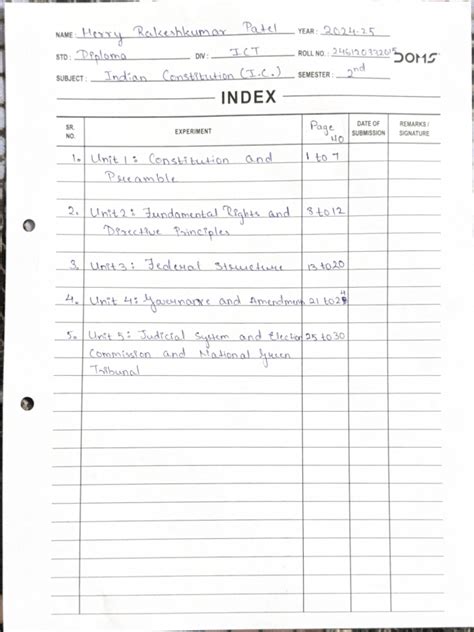 NAME Merry Rakeshkumar Patel YEAR: 2024-25
STD: Diploma DIV: ICT ROLL NO. DOMS
SUBJECT: Indian Constitution (I.C.) SEMESTER: 2nd
INDEX
SR. NO. EXPERIMENT Page No DATE OF SUBMISSION REMARKS / SIGNATURE
1. Unit 1: Constitution and 1 to 7
Preamble
2. Unit 2: Fundamental Rights and 8 to 12
Directive Principles
3. Unit 3: Federal Structure 13 to 20
4. Unit 4: Governance and Amendment 21 to 24
5. Unit 5: Judicial System and Election 25 to 30
Commission and National Green
Tribunal